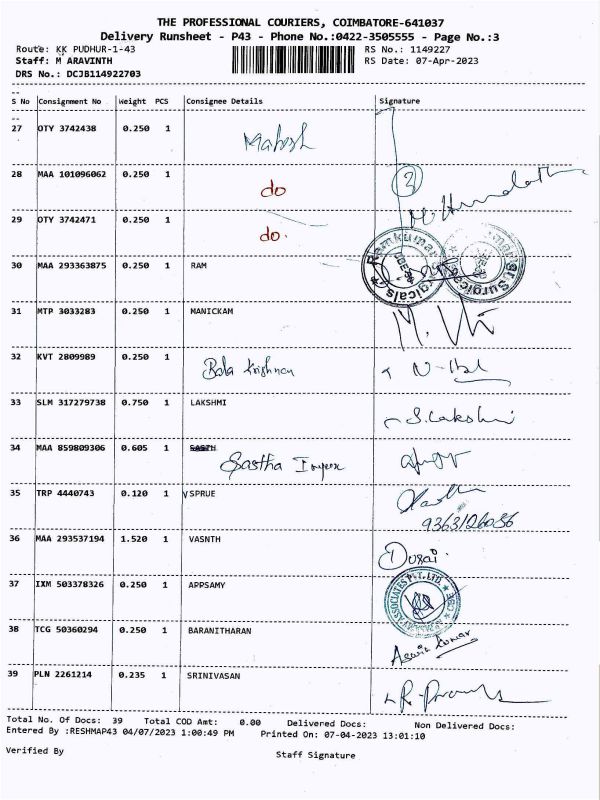 THE PROFESSIONAL COURIERS, COIMBATORE-641037
Delivery Runsheet - P43 - Phone No.:0422-3505555 - Page No.:3
Route: KK PUDHUR-1-43 RS No.: 1149227
Staff: M ARAVINTH RS Date: 07-Apr-2023
DRS No.: DCJB114922703
S No Consignment No Weight PCS Consignee Details Signature
27 OTY 3742438 0.250 1 Mahesh
28 MAA 101096062 0.250 1 do 2
29 OTY 3742471 0.250 1 do.
Ramkumar Surgicals
30 MAA 293363875 0.250 1 RAM
31 MTP 3033283 0.250 1 MANICKAM
32 KVT 2809989 0.250 1 Bala Krishnan
33 SLM 317279738 0.750 1 LAKSHMI S. Lakshmi
34 MAA 859809306 0.605 1 Sastha Impex
35 TRP 4440743 0.120 1 SPRUE
9363126086
36 MAA 293537194 1.520 1 VASNTH Durai
37 IXM 503378326 0.250 1 APPSAMY
ASSOCIATES PVT. LTD. CBE
38 TCG 50360294 0.250 1 BARANITHARAN Aswin Kumar
39 PLN 2261214 0.235 1 SRINIVASAN
Total No. Of Docs: 39 Total COD Amt: 0.00 Delivered Docs: Non Delivered Docs:
Entered By :RESHMAP43 04/07/2023 1:00:49 PM Printed On: 07-04-2023 13:01:10
Verified By Staff Signature